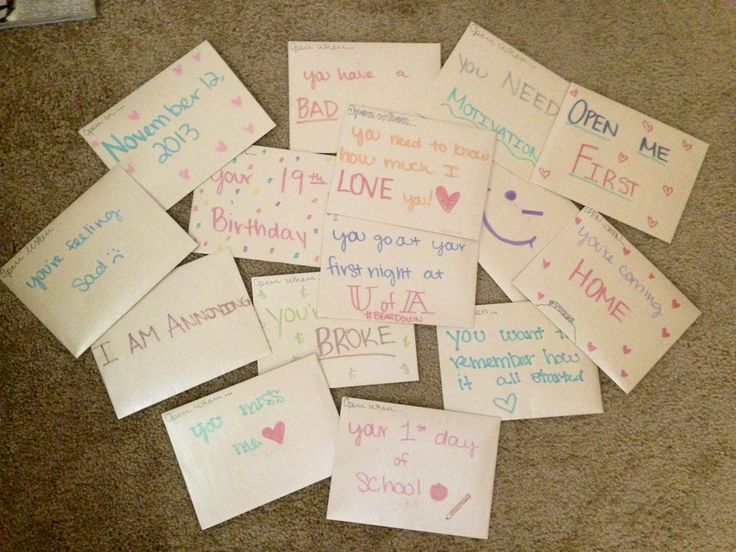 Open on...
November 12,
2013
Open when...
you have a
BAD
Open when...
you NEED
MOTIVATION
OPEN ME
FIRST
Open when...
you need to know
how much I
LOVE ya!
your 19th
Birthday
Open when
you're feeling
sad
you go at your
first night at
U of A
#BEARDOWN
Open when...
you're coming
HOME
I AM ANNOYING
Open when...
You're
BROKE
you want to
remember how
it all started
Open when...
you miss
me
Open when...
your 1st day
of
school